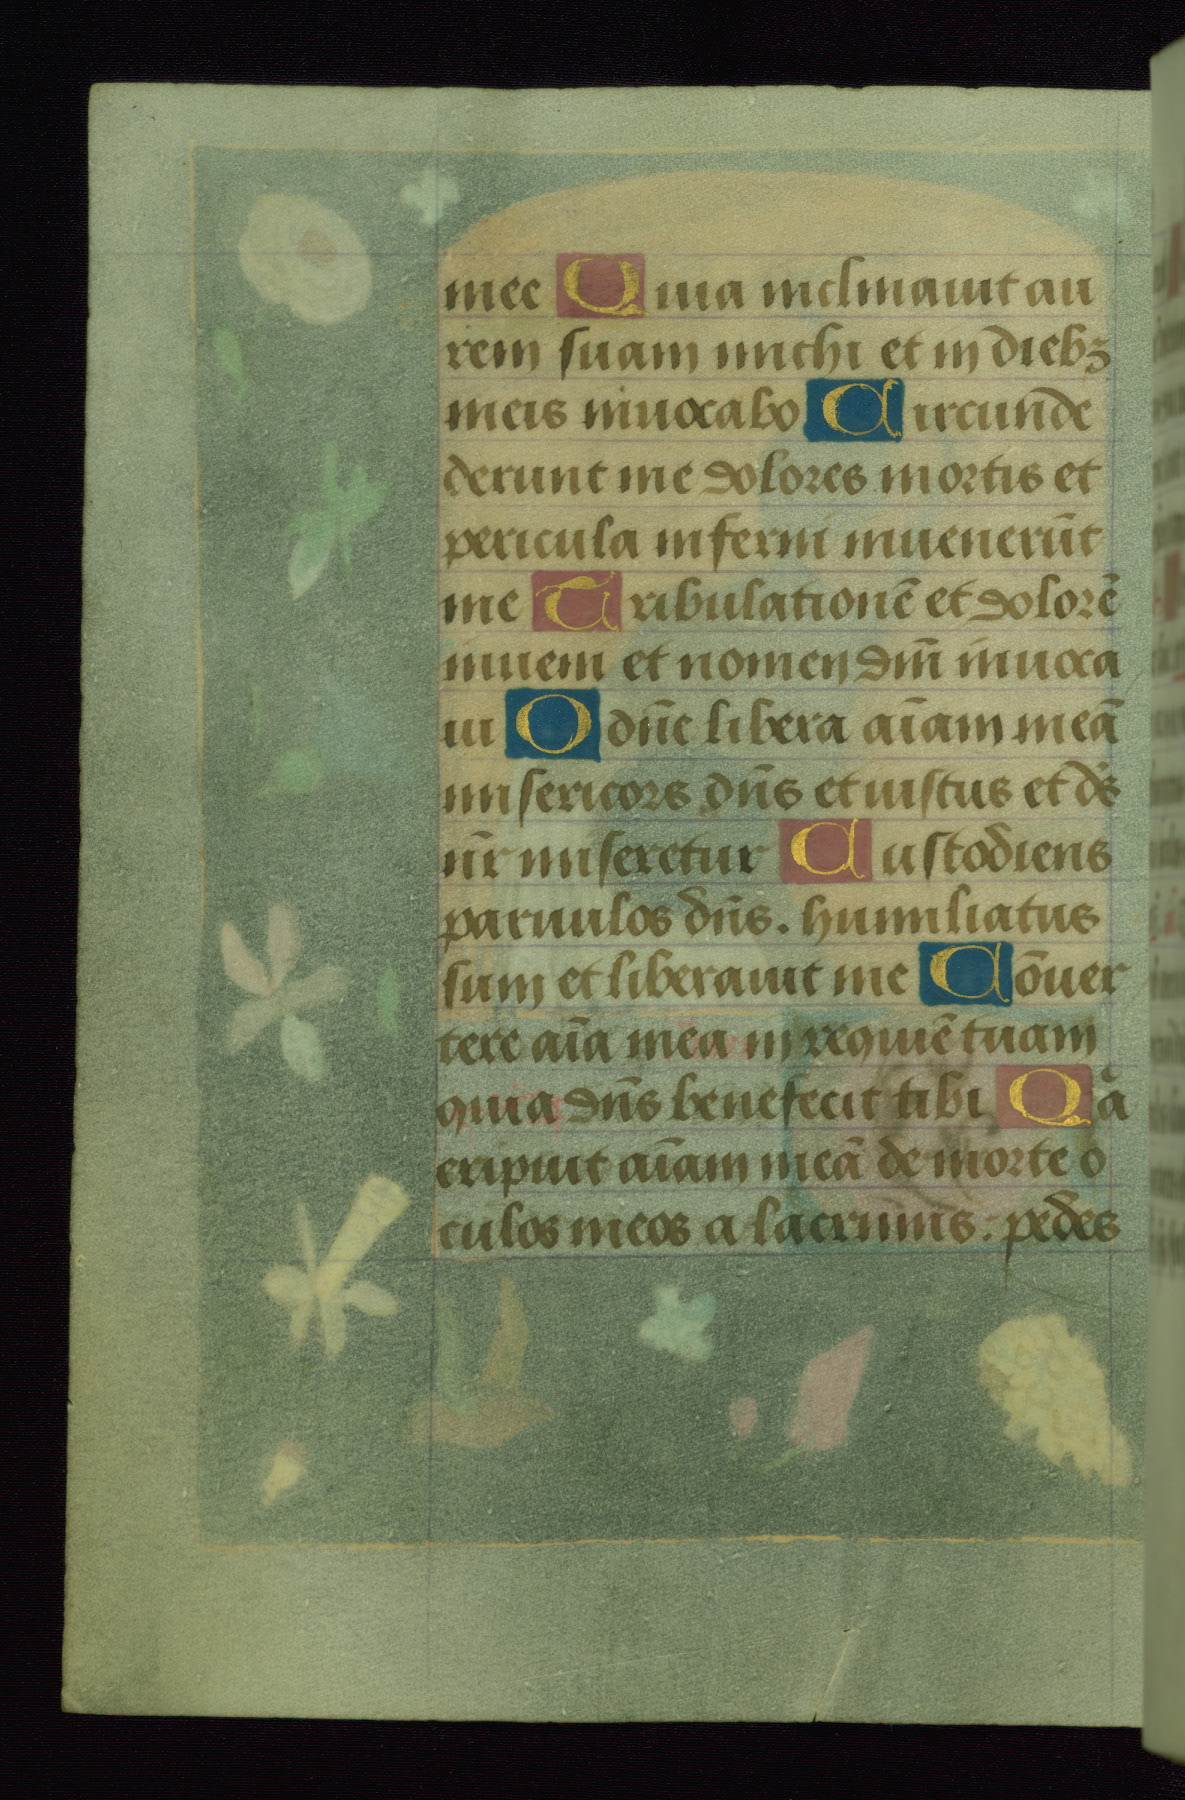 mee Quia inclinauit au
rem suam michi et in diebꝫ
meis inuocabo Circunde
derunt me dolores mortis et
pericula inferni inuenerūt
me Tribulationē et dolorē
inueni et nomen dm̄ inuoca
ui O dn̄e libera aīam meā
misericors dn̄s et iustus et ds̄
nr̄ miseretur Custodiens
paruulos dn̄s. humiliatus
sum et liberauit me Cōuer
tere aīa mea in requiē tuam
quia dn̄s benefecit tibi Qā
eripuit aīam meā de morte o
culos meos a lacrimis. pedes